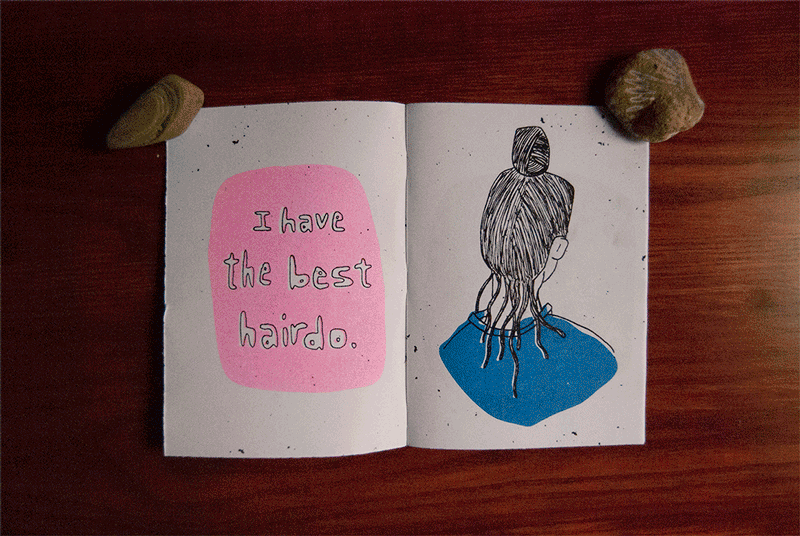 I have
the best
hairdo.